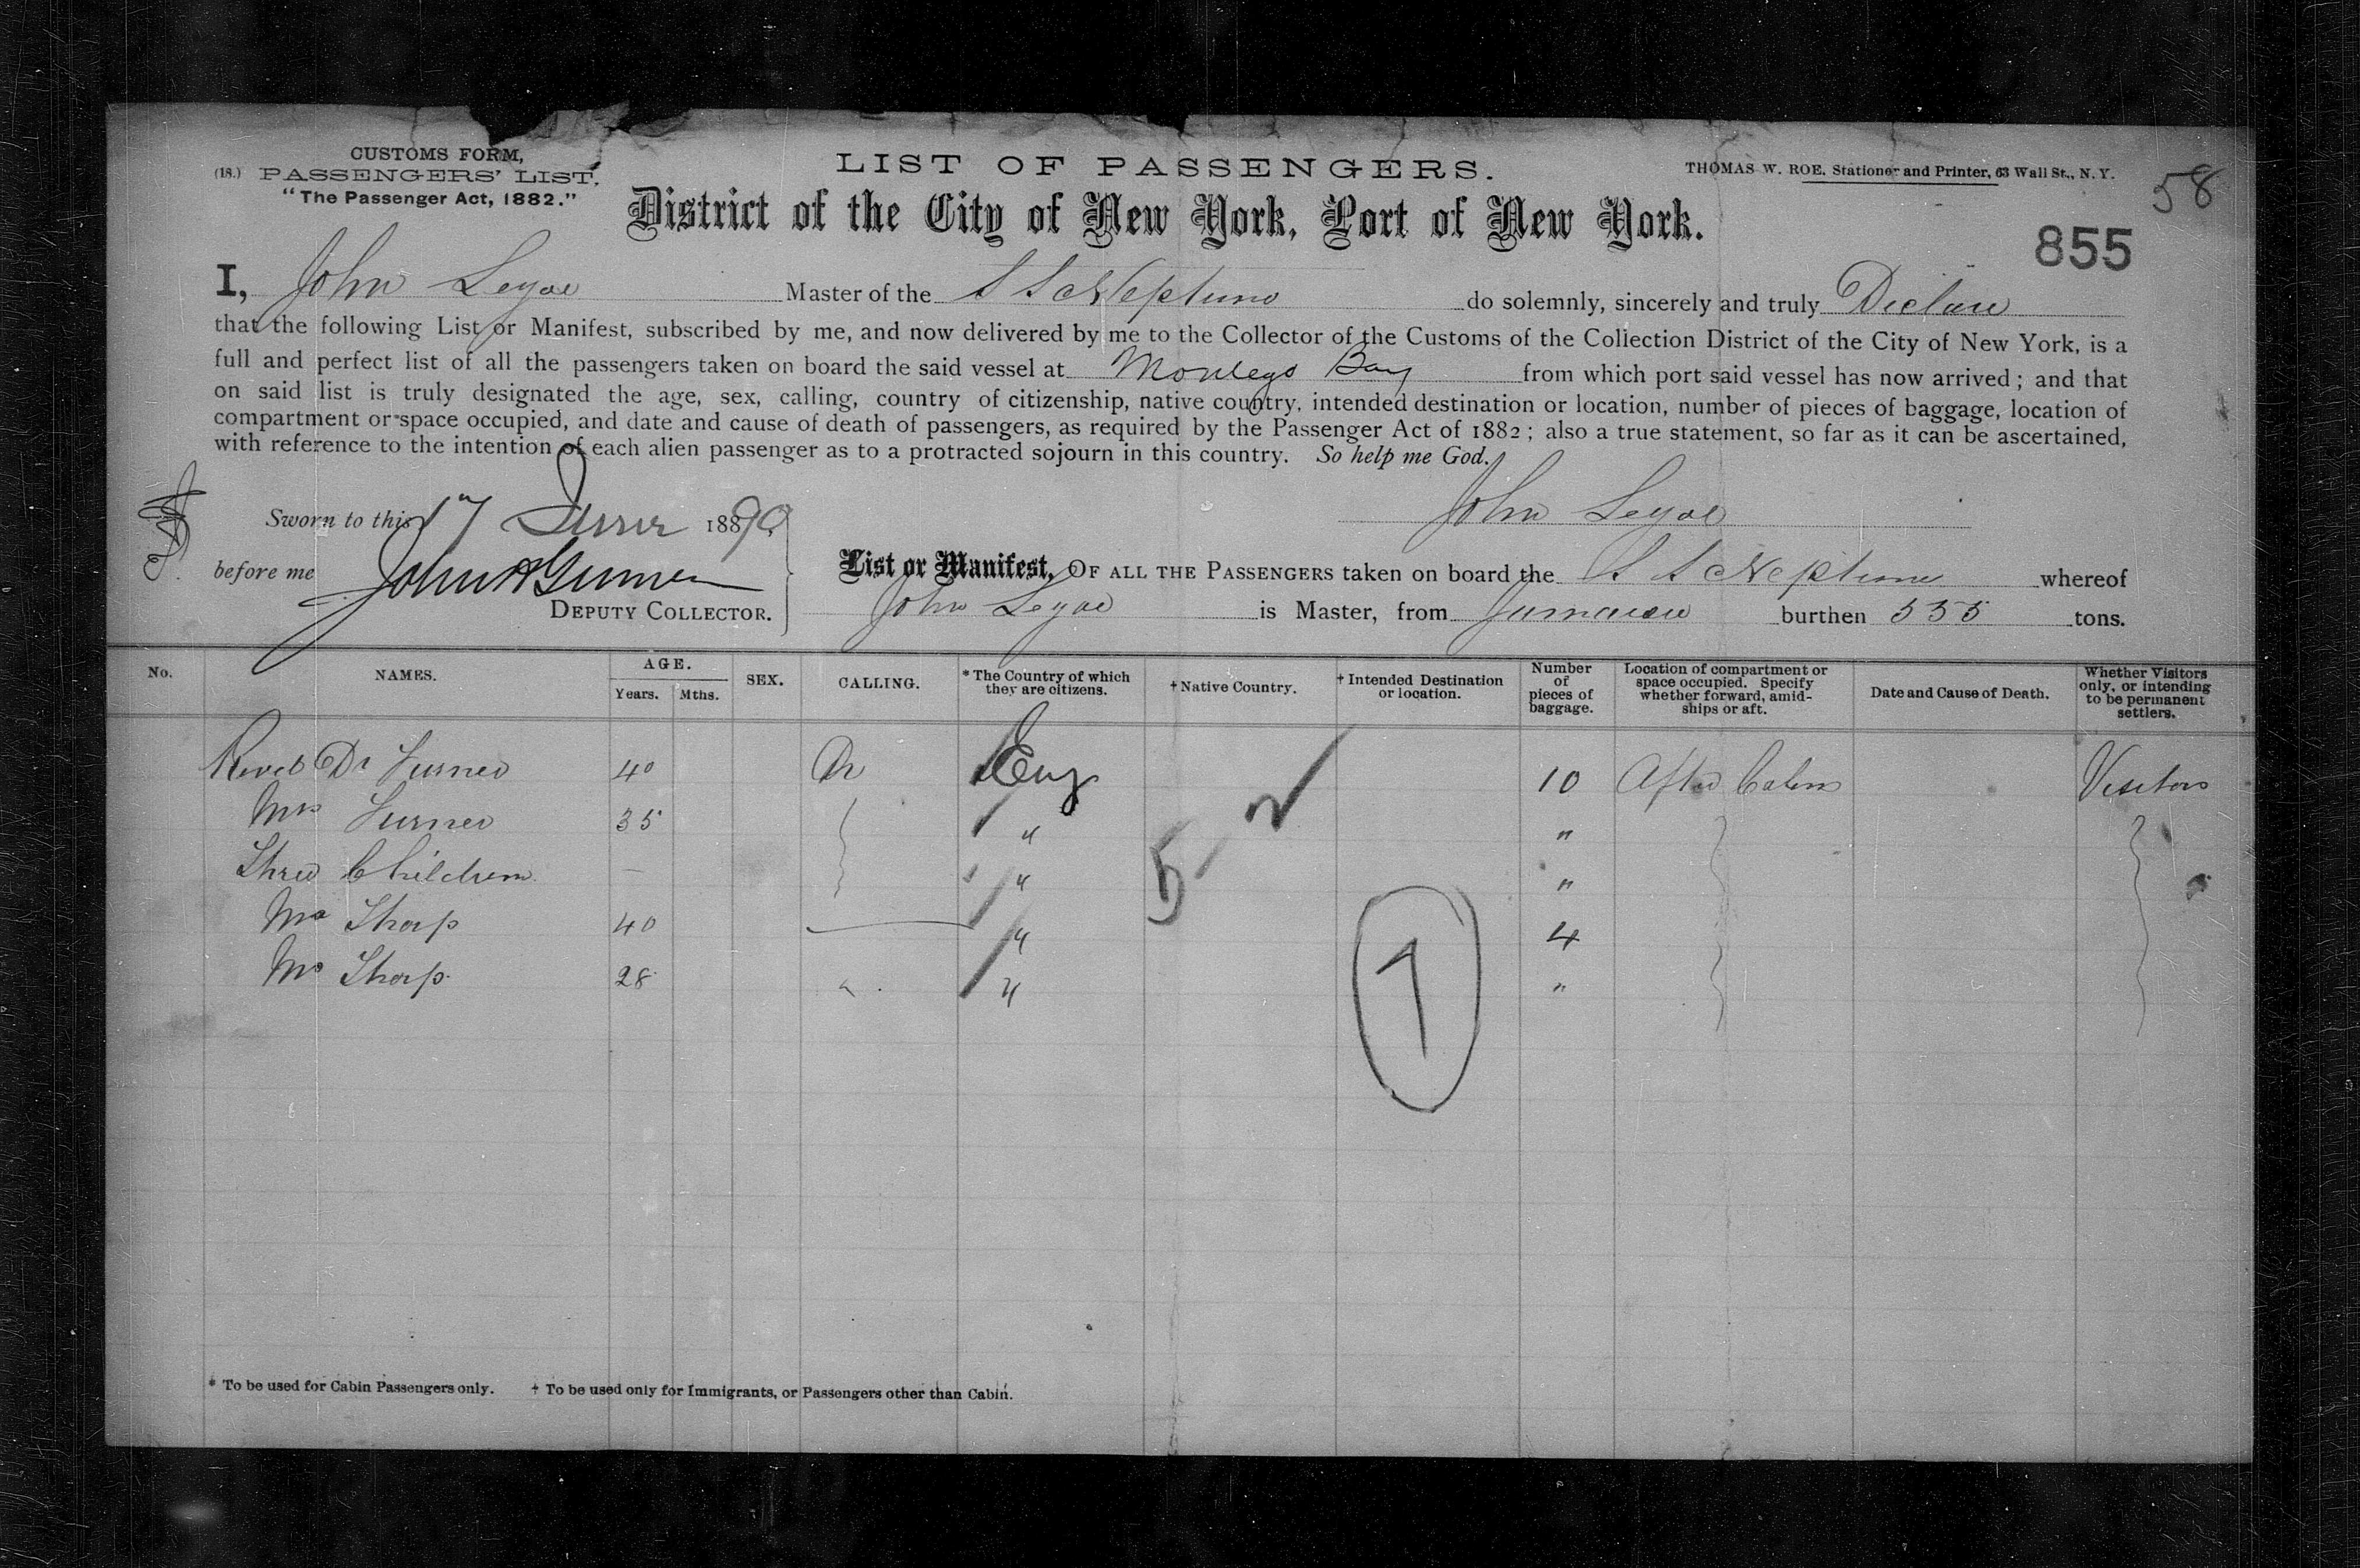 CUSTOMS FORM,
(18.) PASSENGERS' LIST.
"The Passenger Act, 1882."
LIST OF PASSENGERS.
THOMAS W. ROE, Stationer and Printer, 63 Wall St., N. Y.
58
District of the City of New York, Port of New York.
855
I, John Master of the S S Neptuno do solemnly, sincerely and truly Declare
that the following List or Manifest, subscribed by me, and now delivered by me to the Collector of the Customs of the Collection District of the City of New York, is a
full and perfect list of all the passengers taken on board the said vessel at Montego Bay from which port said vessel has now arrived; and that
on said list is truly designated the age, sex, calling, country of citizenship, native country, intended destination or location, number of pieces of baggage, location of
compartment or space occupied, and date and cause of death of passengers, as required by the Passenger Act of 1882; also a true statement, so far as it can be ascertained,
with reference to the intention of each alien passenger as to a protracted sojourn in this country. So help me God.
John
Sworn to this 17 June 1890
before me John
DEPUTY COLLECTOR.
List or Manifest, OF ALL THE PASSENGERS taken on board the S S Neptuno whereof
John is Master, from Jamaica burthen 535 tons.
No. NAMES. AGE. Years. Mths. SEX. CALLING. * The Country of which they are citizens. † Native Country. † Intended Destination or location. Number of pieces of baggage. Location of compartment or space occupied. Specify whether forward, amidships or aft. Date and Cause of Death. Whether Visitors only, or intending to be permanent settlers.
Revd Dr Turner 40 Dr Eng 10 After Cabin Visitors
Mrs Turner 35 " "
Three Children — " "
5
Mr Tharp 40 " 4
Mrs Tharp 28 " " "
7
* To be used for Cabin Passengers only. † To be used only for Immigrants, or Passengers other than Cabin.